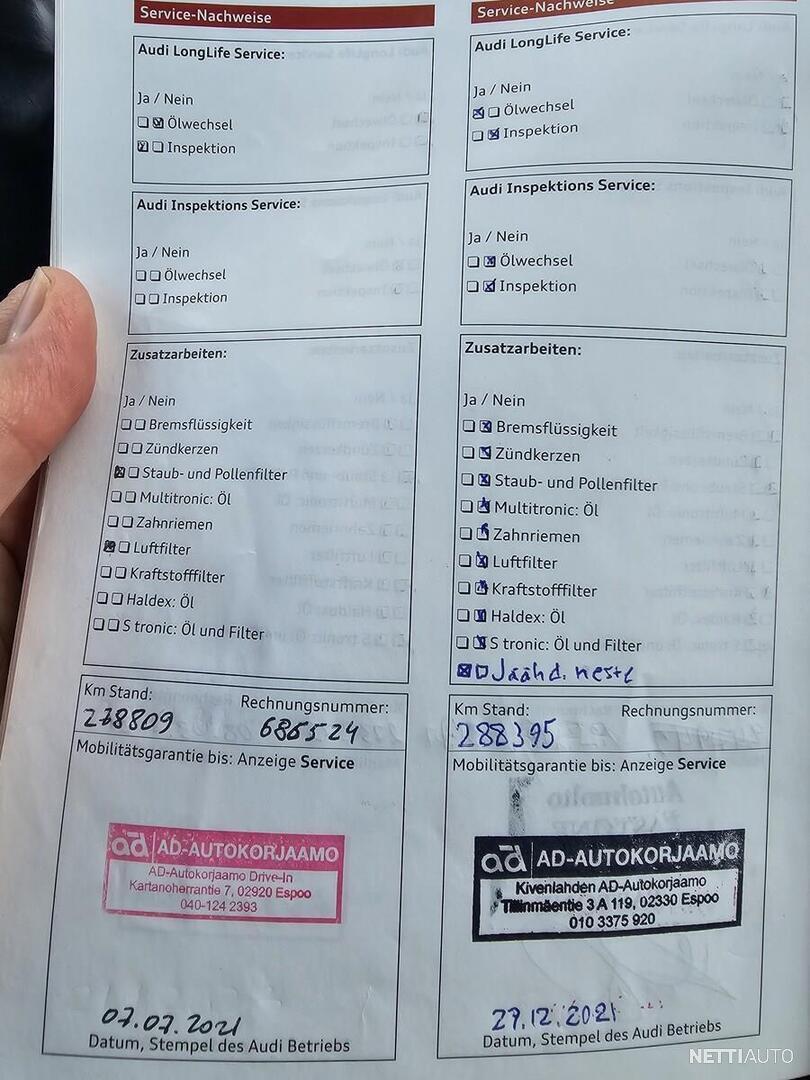 Service-Nachweise
Audi LongLife Service:
Ja / Nein
Ölwechsel
Inspektion
Audi Inspektions Service:
Ja / Nein
Ölwechsel
Inspektion
Zusatzarbeiten:
Ja / Nein
Bremsflüssigkeit
Zündkerzen
Staub- und Pollenfilter
Multitronic: Öl
Zahnriemen
Luftfilter
Kraftstofffilter
Haldex: Öl
S tronic: Öl und Filter
Km Stand:
278809
Rechnungsnummer:
686524
Mobilitätsgarantie bis: Anzeige Service
ad AD-AUTOKORJAAMO
AD-Autokorjaamo Drive-In
Kartanoherrantie 7, 02920 Espoo
040-124 2393
07.07.2021
Datum, Stempel des Audi Betriebs
Service-Nachweise
Audi LongLife Service:
Ja / Nein
Ölwechsel
Inspektion
Audi Inspektions Service:
Ja / Nein
Ölwechsel
Inspektion
Zusatzarbeiten:
Ja / Nein
Bremsflüssigkeit
Zündkerzen
Staub- und Pollenfilter
Multitronic: Öl
Zahnriemen
Luftfilter
Kraftstofffilter
Haldex: Öl
S tronic: Öl und Filter
Jäähd. neste
Km Stand:
288395
Rechnungsnummer:
Mobilitätsgarantie bis: Anzeige Service
ad AD-AUTOKORJAAMO
Kivenlahden AD-Autokorjaamo
Tillinmäentie 3 A 119, 02330 Espoo
010 3375 920
27.12.2021
Datum, Stempel des Audi Betriebs
NETTIAUTO